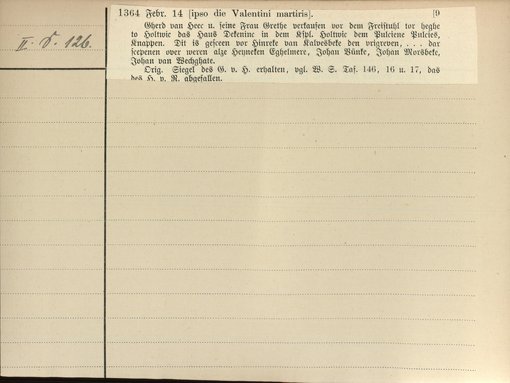 1364 Febr. 14 [ipso die Valentini martiris]. [9
Gherd van Heec u. seine Frau Grethe verkaufen vor dem Freistuhl tor heghe
to Holtwic das Haus Dekeninc in dem Kspl. Holtwic dem Pulciene Pulcies,
Knappen. Dit is gescen vor Hinreke van Kalvesbeke den vrigreven, . . . dar
scepenen over weren alze Heyneken Eghelmere, Johan Vünke, Johan Morsbeke,
Johan van Wechghate.
Orig. Siegel des G. v. H. erhalten, vgl. W. S. Taf. 146, 16 u. 17, das
des H. v. K. abgefallen.
II. 126.